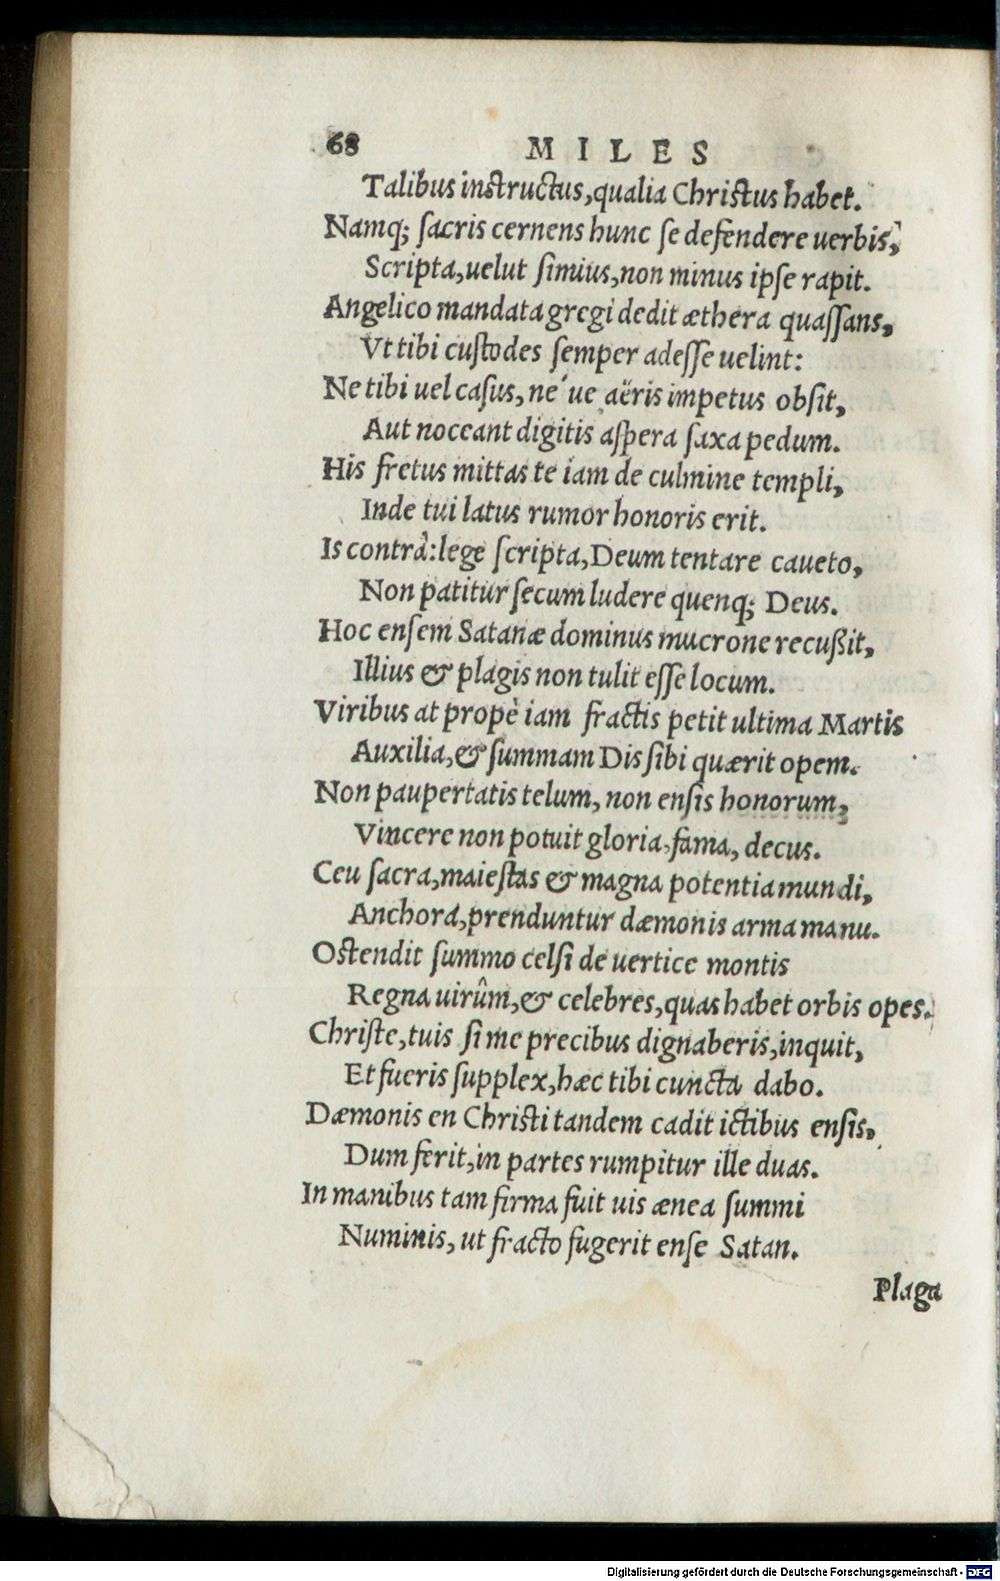 68 MILES
Talibus instructus, qualia Christus habet.
Namq; ſacris cernens hunc ſe defendere uerbis,
Scripta, uelut ſimius, non minus ipſe rapit.
Angelico mandata gregi dedit æthera quaſſans,
Vt tibi cuſtodes ſemper adeſſe uelint:
Ne tibi uel caſus, ne´ue aëris impetus obſit,
Aut noceant digitis aſpera ſaxa pedum.
His fretus mittas te iam de culmine templi,
Inde tui latus rumor honoris erit.
Is contrà: lege ſcripta, Deum tentare caueto,
Non patitur ſecum ludere quenq; Deus.
Hoc enſem Satanæ dominus mucrone recußit,
Illius & plagis non tulit eſſe locum.
Viribus at propè iam fractis petit ultima Martis
Auxilia, & ſummam Dis ſibi quærit opem.
Non paupertatis telum, non enſis honorum,
Vincere non potuit gloria, fama, decus.
Ceu ſacra, maieſtas & magna potentia mundi,
Anchora, prenduntur dæmonis arma manu.
Oſtendit ſummo celſi de uertice montis
Regna uirûm, & celebres, quas habet orbis opes.
Chriſte, tuis ſi me precibus dignaberis, inquit,
Et fueris ſupplex, hæc tibi cuncta dabo.
Dæmonis en Chriſti tandem cadit ictibus enſis,
Dum ferit, in partes rumpitur ille duas.
In manibus tam firma fuit uis ænea ſummi
Numinis, ut fracto fugerit enſe Satan.
Plaga
Digitalisierung gefördert durch die Deutsche Forschungsgemeinschaft - DFG